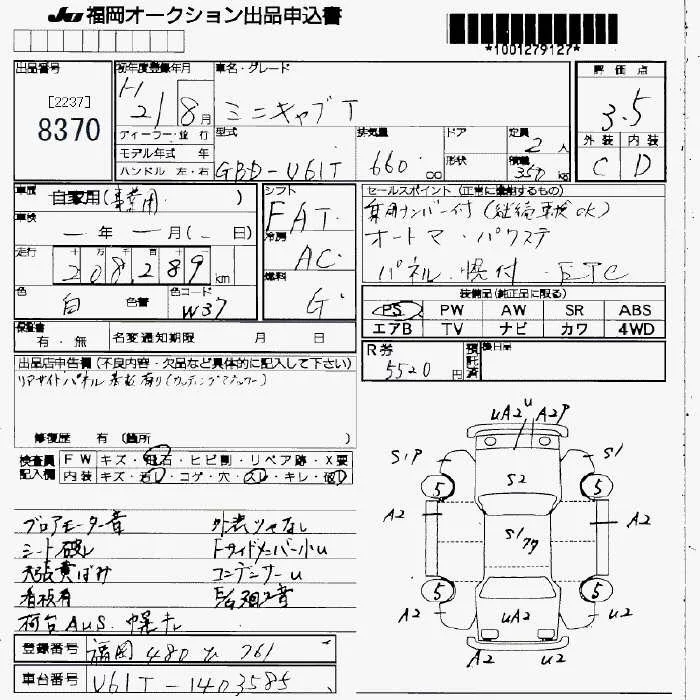 JU 福岡オークション出品申込書
*1001279127*
出品番号
[2237]
8370
初年度登録年月
H 21 8月
ディーラー・並行
モデル年式 年
ハンドル 左・右
車名・グレード
ミニキャブT
型式
GBD-U61T
排気量
660 cc
ドア
形状
定員
2人
積載
350 kg
評価点
3.5
外装 内装
C D
車歴
自家用(事業用)
車検
一年 一月(一日)
走行
208,289 km
色
白 色替
色コード
W37
シフト
FAT
冷房
AC
燃料
G
セールスポイント(正常に機能するもの)
オートマ・パワステ
パネル 幌付 ETC
装備品(純正品に限る)
PS PW AW SR ABS
エアB TV ナビ カワ 4WD
保証書
有・無
名変通知期限 月 日
R券
5520円
積託済
後日品
出品店申告欄(不良内容・欠品など具体的に記入して下さい)
修復歴 有(箇所
検査員記入欄
FW キズ・飛石・ヒビ割・リペア跡・X要
内装 キズ・汚レ・コゲ・穴・スレ・キレ・破レ
ブロアモーター音
シート破レ
天張黄ばみ
看板有
荷台AUS 幌キレ
外装ツヤなし
Fサイドメンバー小U
コンデンサーU
uA2 u A2P
S1P S1
S2
5 5
A2 A2
S1
5 5
A2 uA2 u2
A2 u2
登録番号
福岡 480 761
車台番号
U61T-1403585